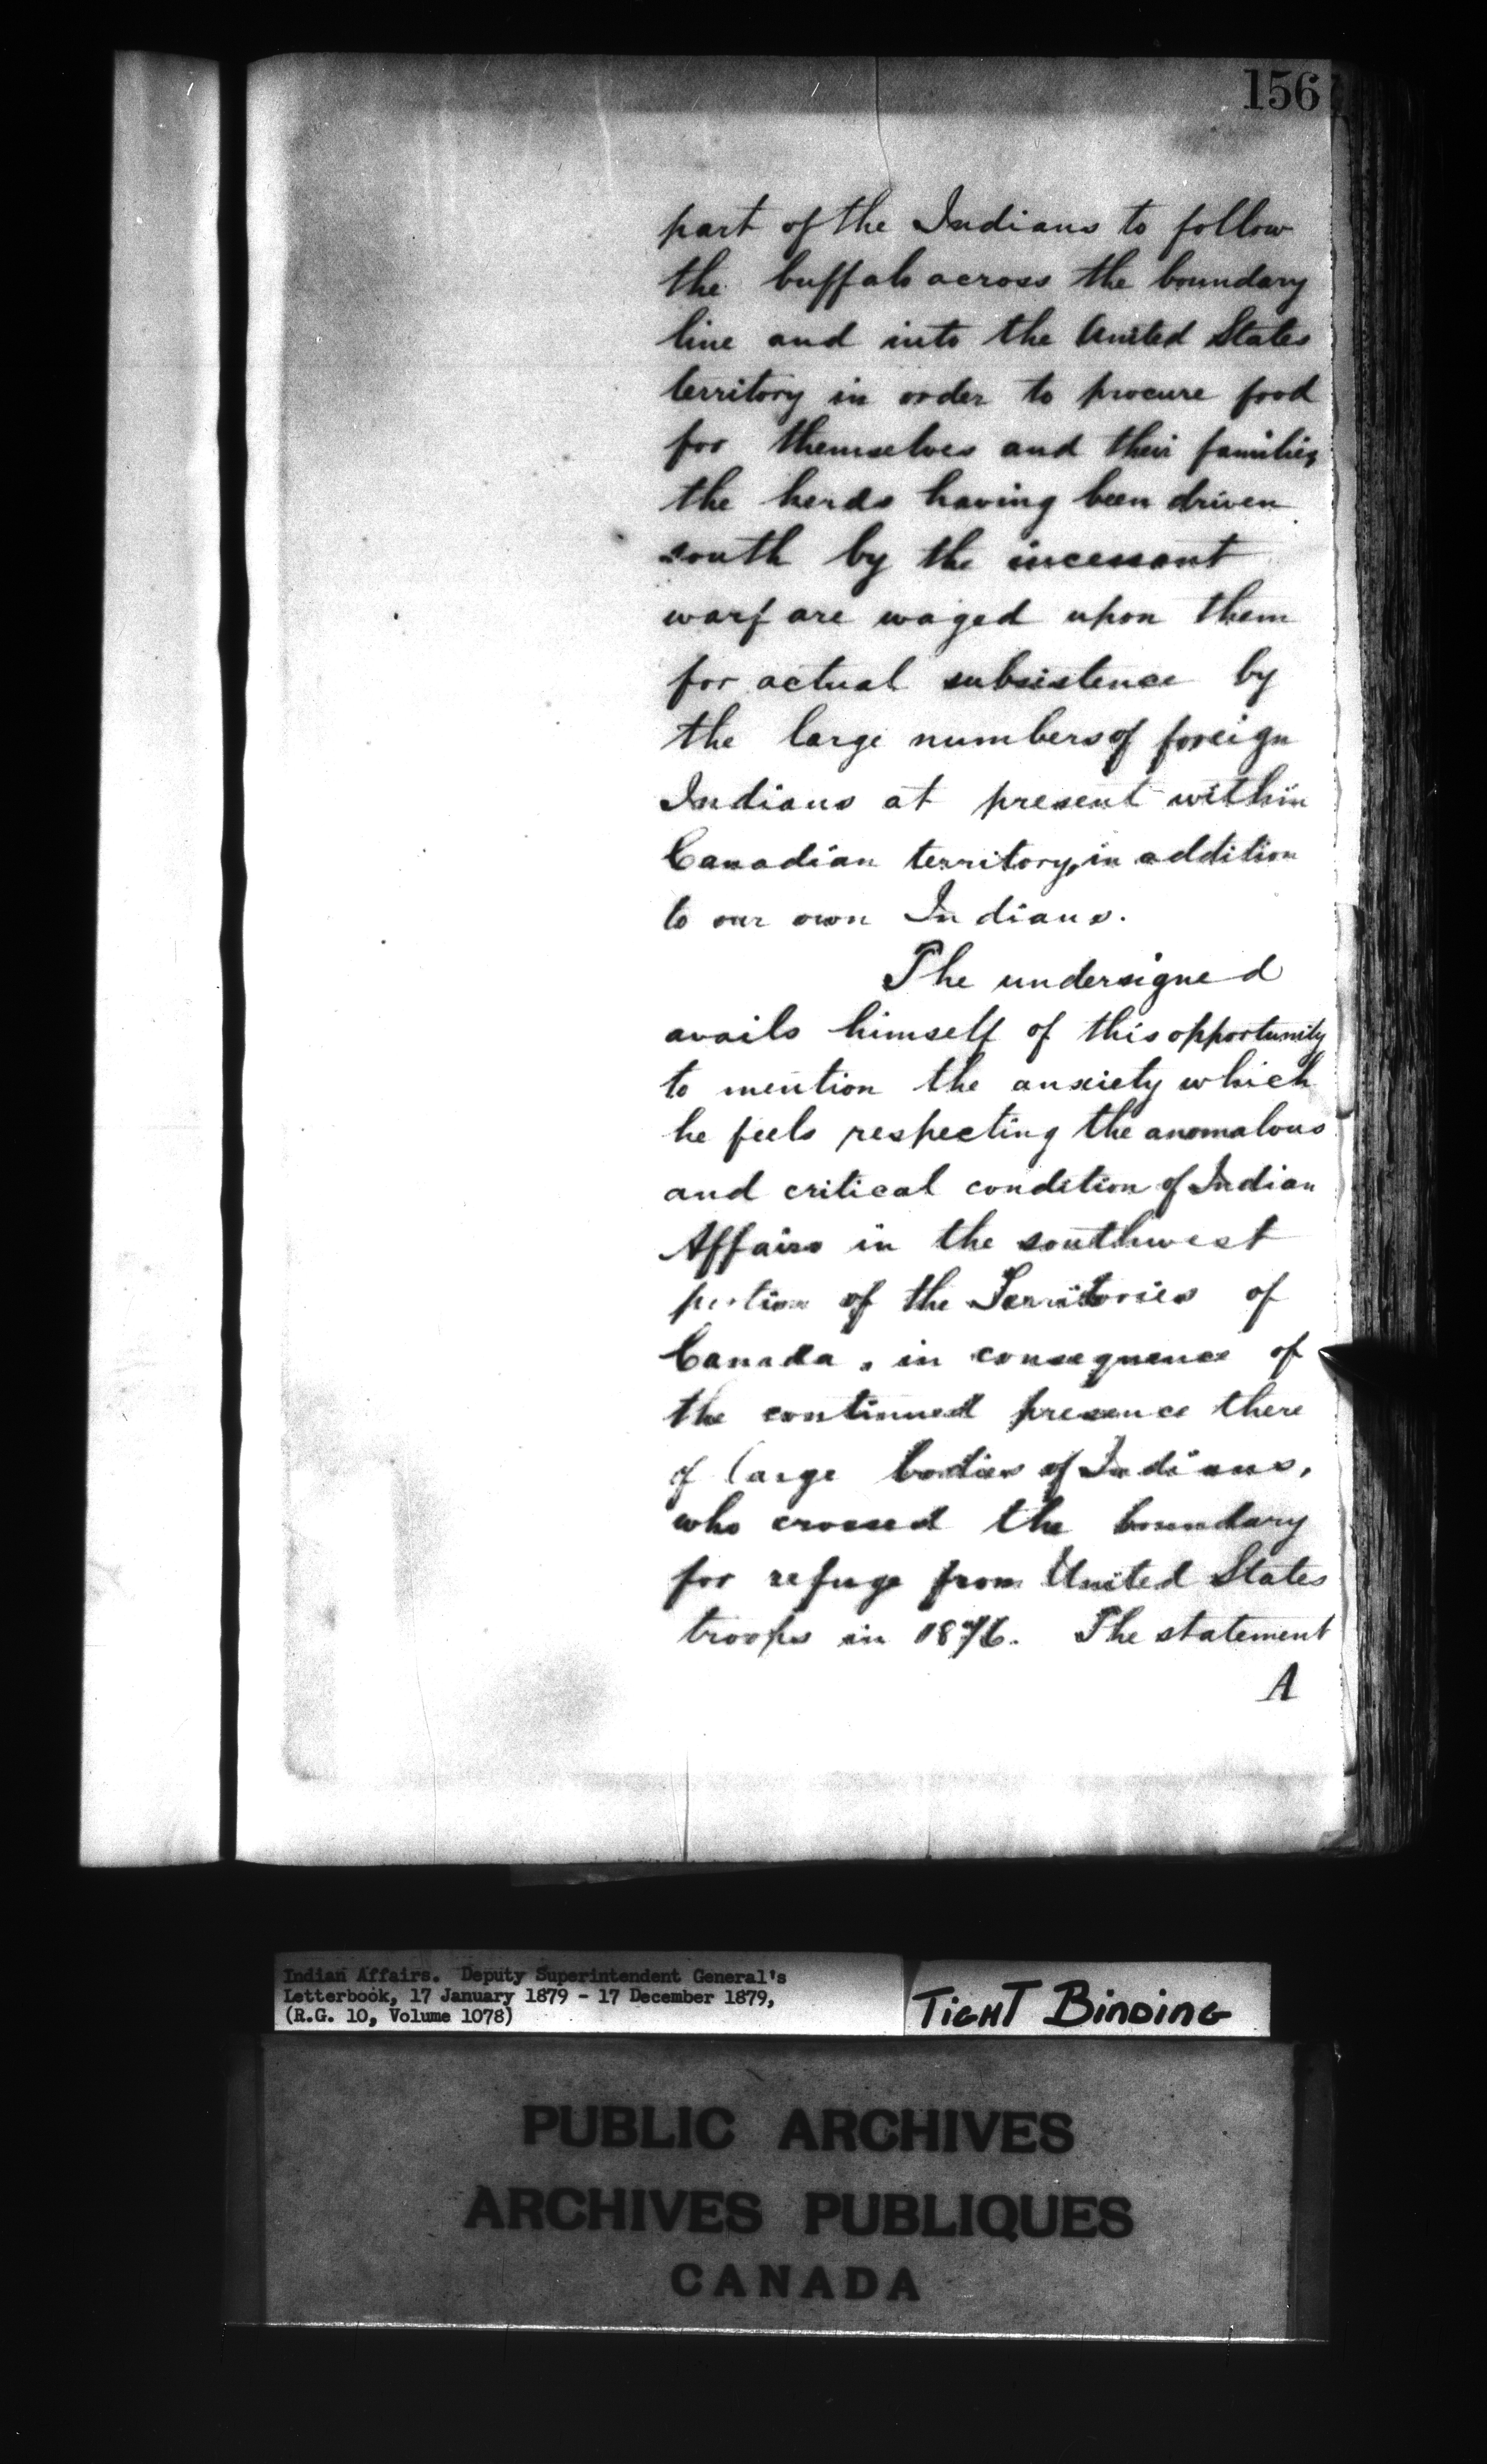 156
part of the Indians to follow
the buffalo across the boundary
line and into the United States
territory in order to procure food
for themselves and their families
the herds having been driven
south by the incessant
warfare waged upon them
for actual subsistence by
the large numbers of foreign
Indians at present within
Canadian territory, in addition
to our own Indians.
The undersigned
avails himself of this opportunity
to mention the anxiety which
he feels respecting the anomalous
and critical condition of Indian
Affairs in the southwest
portion of the Territories of
Canada, in consequence of
the continued presence there
of large bodies of Indians,
who crossed the boundary
for refuge from United States
troops in 1876. The statement
A
Indian Affairs. Deputy Superintendent General's
Letterbook, 17 January 1879 - 17 December 1879,
(R.G. 10, Volume 1078)
TIGHT BINDING
PUBLIC ARCHIVES
ARCHIVES PUBLIQUES
CANADA